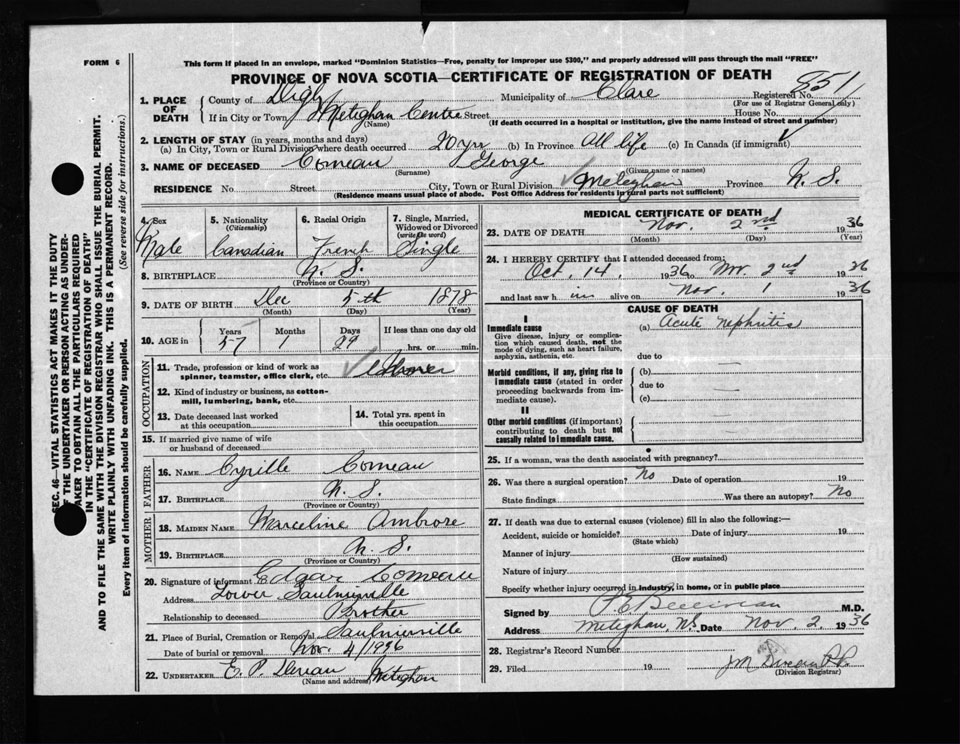 FORM 6
This form if placed in an envelope, marked "Dominion Statistics—Free, penalty for improper use $300," and properly addressed will pass through the mail "FREE"
PROVINCE OF NOVA SCOTIA—CERTIFICATE OF REGISTRATION OF DEATH
851
1. PLACE OF DEATH
County of Digby Municipality of Clare Registered No.
(For use of Registrar General only)
If in City or Town Meteghan Centre Street House No.
(Name) (If death occurred in a hospital or institution, give the name instead of street and number)
2. LENGTH OF STAY (in years, months and days)
(a) In City, Town or Rural Division where death occurred 20 yrs (b) In Province All life (c) In Canada (if immigrant)
3. NAME OF DECEASED Comeau George
(Surname) (Given name or names)
RESIDENCE No Street City, Town or Rural Division Meteghan Province N. S.
(Residence means usual place of abode. Post Office Address for residents in rural parts not sufficient)
4. Sex Male
5. Nationality (Citizenship) Canadian
6. Racial Origin French
7. Single, Married, Widowed or Divorced (write the word) Single
8. BIRTHPLACE N. S.
(Province or County)
9. DATE OF BIRTH Dec 5th 1878
(Month) (Day) (Year)
10. AGE in Years 57 Months Days 29 If less than one day old hrs. or min.
OCCUPATION
11. Trade, profession or kind of work as spinner, teamster, office clerk, etc.
12. Kind of industry or business, as cotton-mill, lumbering, bank, etc.
13. Date deceased last worked at this occupation
14. Total yrs. spent in this occupation
15. If married give name of wife or husband of deceased
FATHER
16. NAME Cyrille Comeau
17. BIRTHPLACE N. S.
(Province or County)
MOTHER
18. MAIDEN NAME Marceline Ambrose
19. BIRTHPLACE N. S.
(Province or Country)
20. Signature of informant Edgar Comeau
Address Lower Saulnierville
Relationship to deceased Brother
21. Place of Burial, Cremation or Removal Saulnierville
Date of burial or removal Nov. 4/1936
22. UNDERTAKER E. P. Meteghan
(Name and address)
MEDICAL CERTIFICATE OF DEATH
23. DATE OF DEATH Nov. 2nd 1936
(Month) (Day) (Year)
24. I HEREBY CERTIFY that I attended deceased from:
Oct, 14, 1936 to Nov. 2nd 1936
and last saw him alive on Nov. 1 1936
CAUSE OF DEATH
I
Immediate cause
Give disease, injury or complication which caused death, not the mode of dying, such as heart failure, asphyxia, asthenia, etc.
(a) Acute nephritis
due to
Morbid conditions, if any, giving rise to immediate cause (stated in order proceeding backwards from immediate cause).
(b)
due to
(c)
II
Other morbid conditions (if important) contributing to death but not causally related to immediate cause.
25. If a woman, was the death associated with pregnancy?
26. Was there a surgical operation? No Date of operation 19
State findings Was there an autopsy? No
27. If death was due to external causes (violence) fill in also the following:—
Accident, suicide or homicide? Date of injury 19
(State which)
Manner of injury
(How sustained)
Nature of injury
Specify whether injury occurred in industry, in home, or in public place
Signed by M.D.
Address Meteghan, N.S. Date Nov. 2 1936
28. Registrar's Record Number
29. Filed 19
(Division Registrar)
SEC. 46—VITAL STATISTICS ACT MAKES IT THE DUTY
OF THE UNDERTAKER OR PERSON ACTING AS UNDER-
TAKER TO OBTAIN ALL THE PARTICULARS REQUIRED
IN THE "CERTIFICATE OF REGISTRATION OF DEATH"
AND TO FILE THE SAME WITH THE DIVISION REGISTRAR WHO SHALL ISSUE THE BURIAL PERMIT.
WRITE PLAINLY WITH UNFADING INK. THIS IS A PERMANENT RECORD.
Every item of information should be carefully supplied. (See reverse side for instructions.)